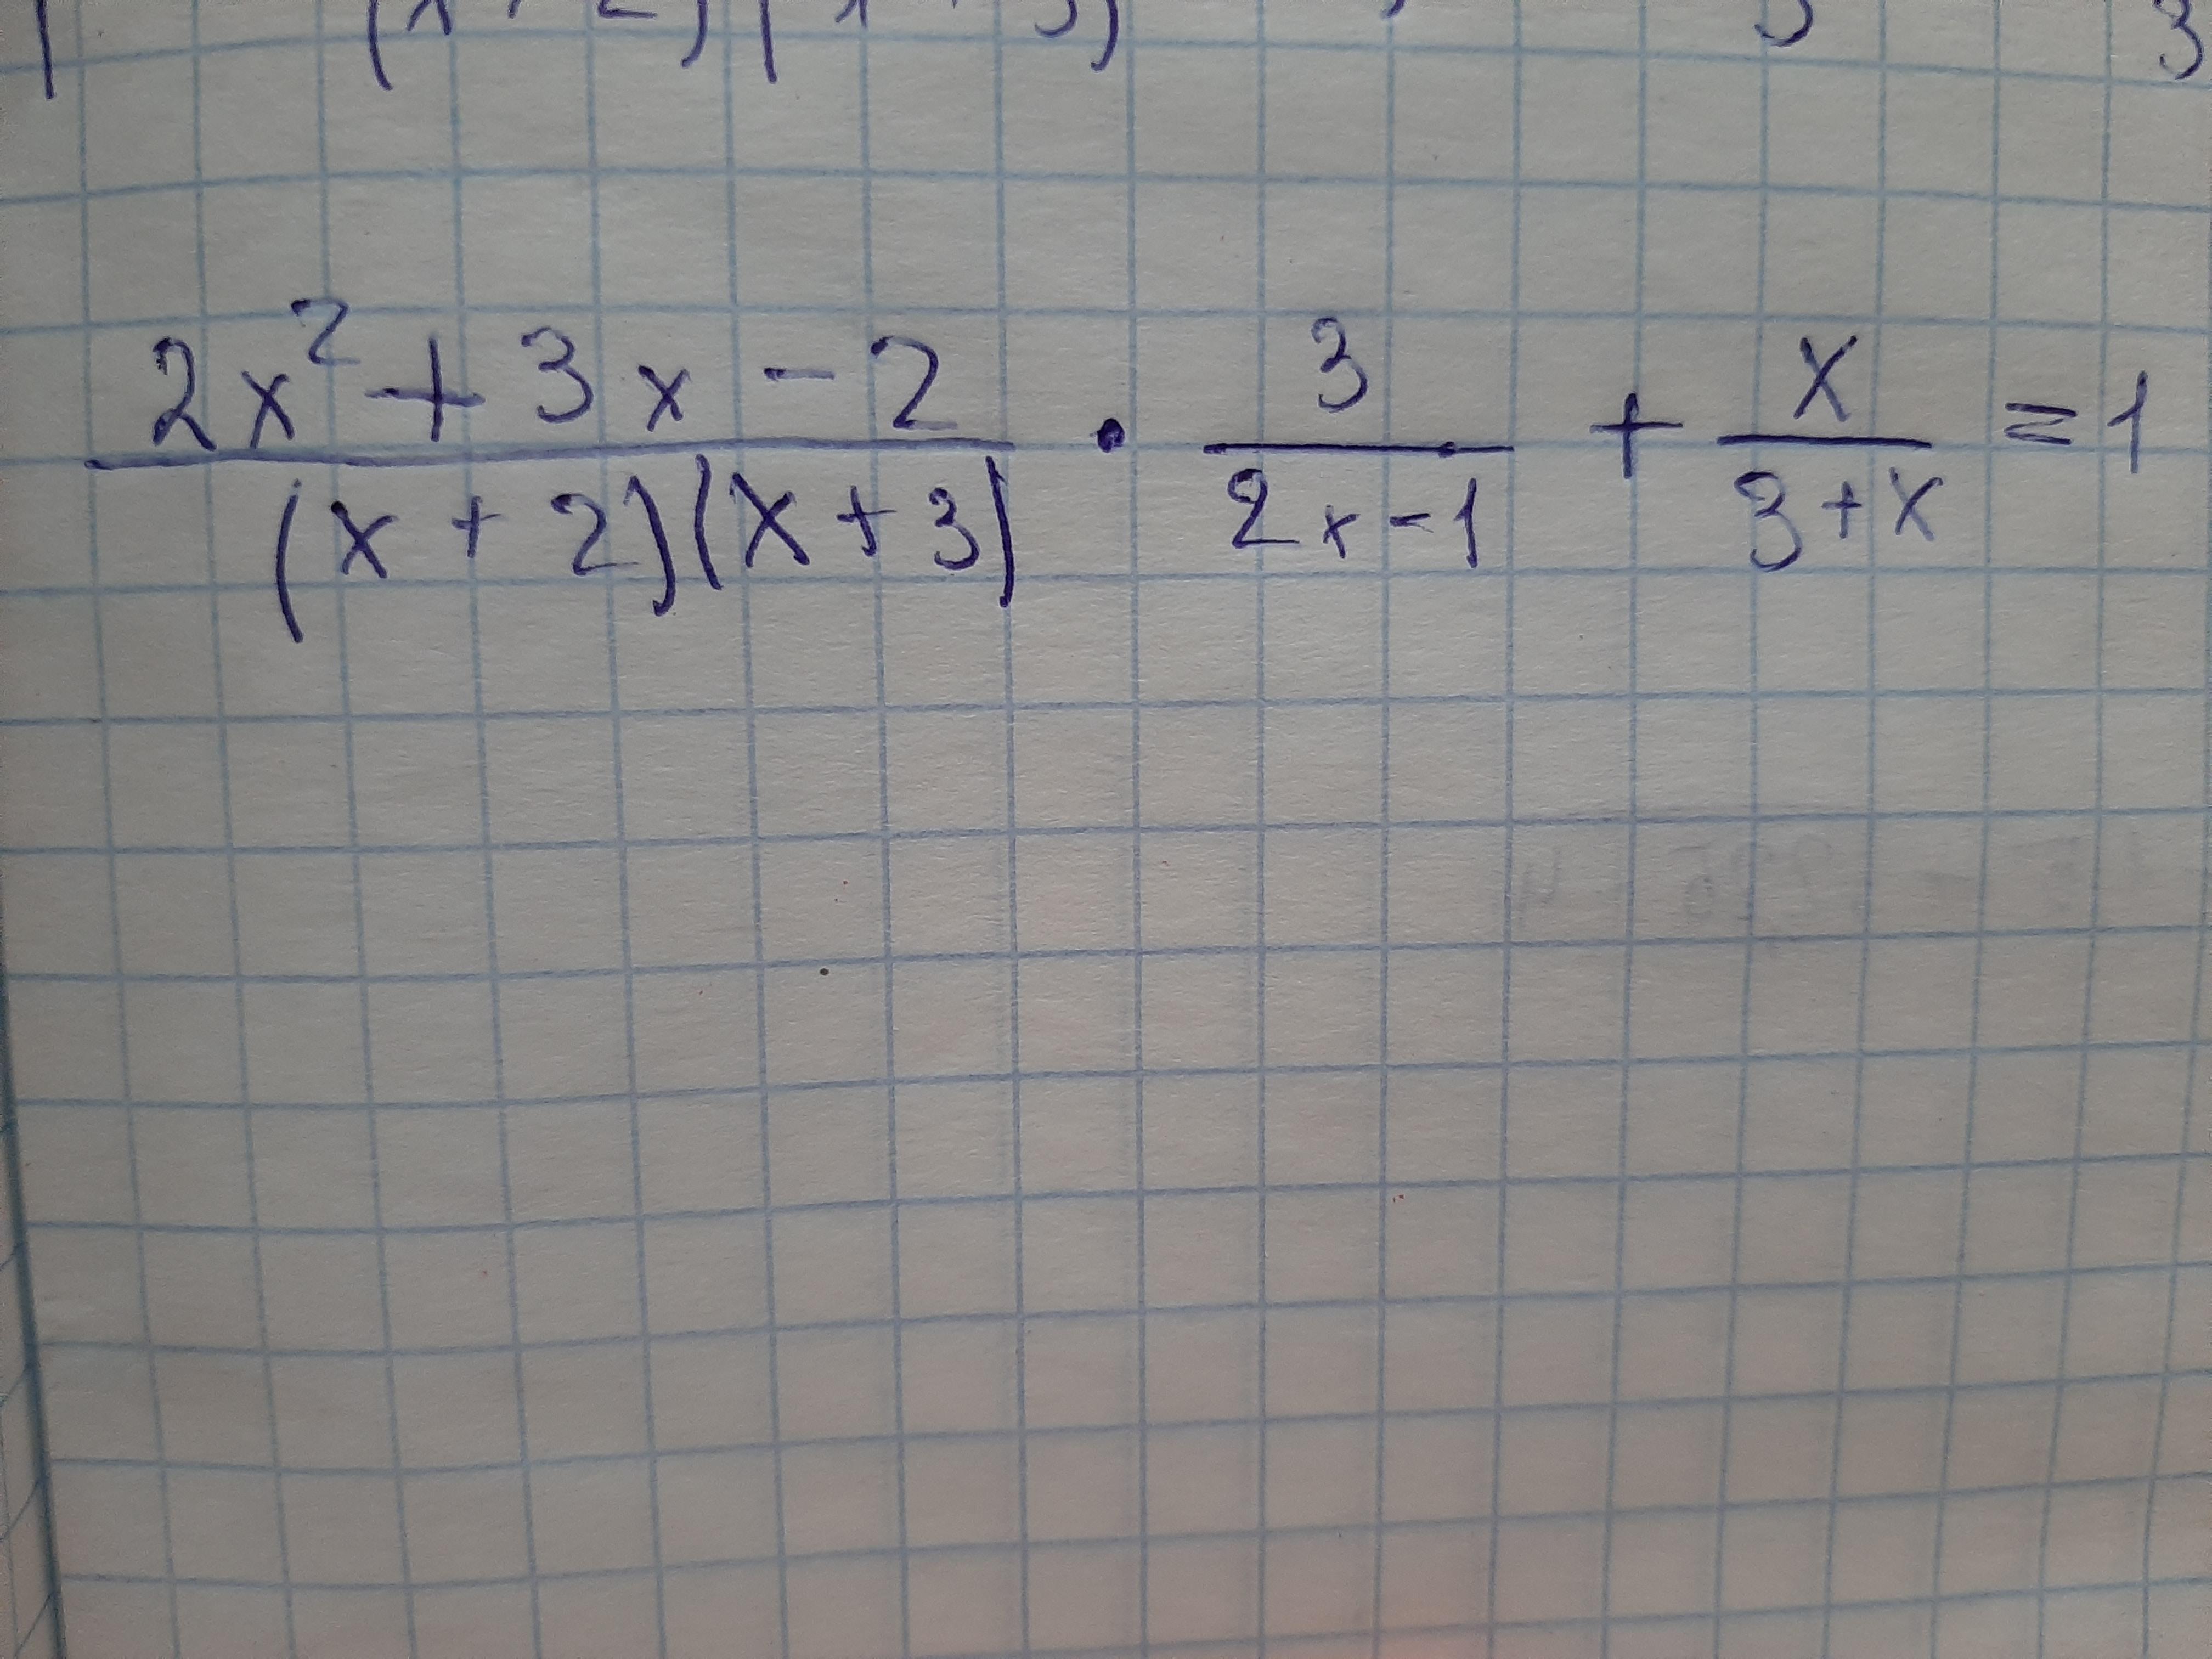 (x + 2)(x + 3)
2x² + 3x - 2 / (x + 2)(x + 3) · 3 / 2x - 1 + x / 3 + x = 1